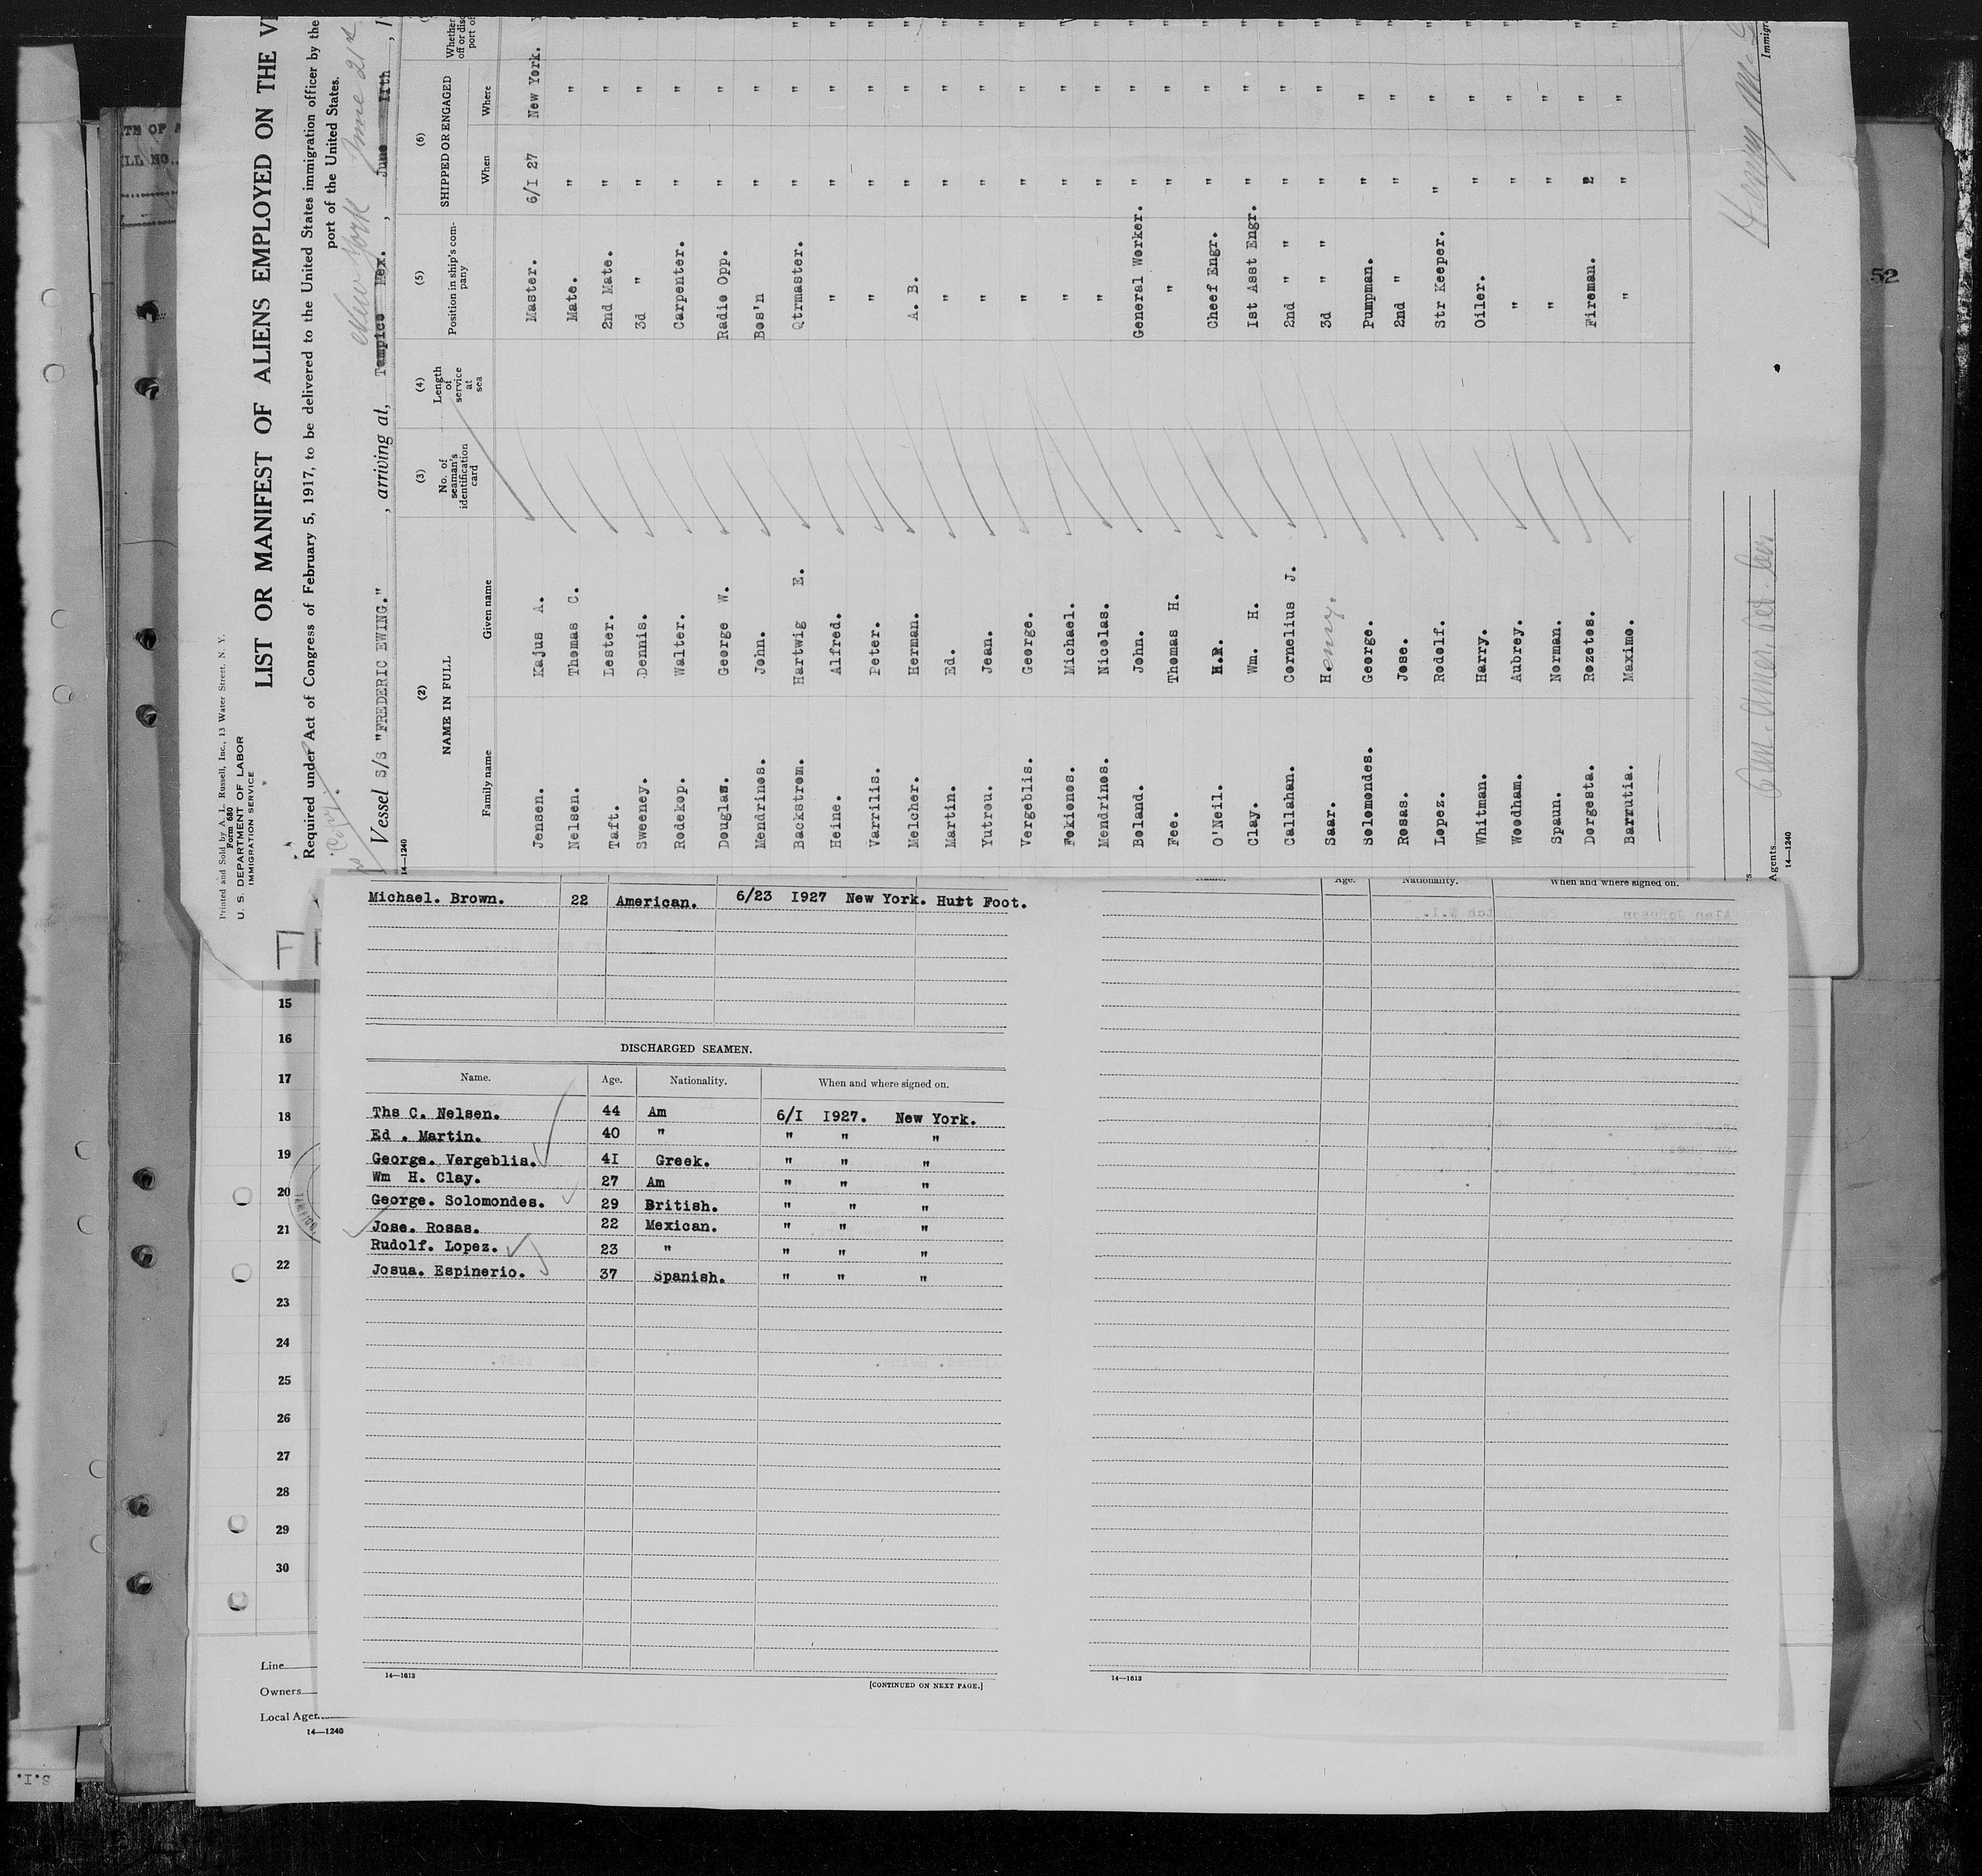 Printed and Sold by A. L. Russell, Inc., 13 Water Street, N. Y.
Form 680
U. S. DEPARTMENT OF LABOR
IMMIGRATION SERVICE
LIST OR MANIFEST OF ALIENS EMPLOYED ON THE
Required under Act of Congress of February 5, 1917, to be delivered to the United States immigration officer by the
port of the United States.
Copy.
New York June 21st
Vessel S/S "FREDERIC EWING." , arriving at, Tampico Mex. , June 11th , 1
14—1240
(2) (3) (4) (5) (6)
NAME IN FULL No. of seaman's identification card Length of service at sea Position in ship's company SHIPPED OR ENGAGED Whether
Family name Given name When Where
Jensen. Kajus A. Master. 6/I 27 New York.
Nelsen. Thomas C. Mate. " " "
Taft. Lester. 2nd Mate. " " "
Sweeney. Dennis. 3d " " " "
Redekop. Walter. Carpenter. " " "
Douglas. George W. Radio Opp. " " "
Mendrines. John. Bos'n " " "
Backstrom. Hartwig E. Qtrmaster. " " "
Heine. Alfred. " " " "
Varrilis. Peter. " " " "
Melcher. Herman. A. B. " " "
Martin. Ed. " " " "
Yutrou. Jean. " " " "
Vergeblis. George. " " " "
Fokiones. Michael. " " " "
Mendrines. Nicolas. " " " "
Boland. John. General Worker. " " "
Fee. Thomas H. " " " "
O'Neil. H.R. Cheef Engr. " " "
Clay. Wm. H. Ist Asst Engr. " " "
Callahan. Cornelius J. 2nd " " " " "
Saar. Henry. 3d " " " " "
Solomondes. George. Pumpman. " " "
Rosas. Jose. 2nd " " " "
Lopez. Rodolf. Str Keeper. " " "
Whitman. Harry. Oiler. " " "
Woodham. Aubrey. " " " "
Spaun. Norman. " " " "
Dorgesta. Rozetos. Fireman. " " "
Barrutia. Maximo. " " " "
Agents
14—1240
Henry
52
Michael. Brown. 22 American. 6/23 1927 New York. Hurt Foot.
DISCHARGED SEAMEN.
Name. Age. Nationality. When and where signed on.
Ths C. Nelsen. 44 Am 6/I I927. New York.
Ed . Martin. 40 " " " "
George. Vergeblis. 4I Greek. " " "
Wm H. Clay. 27 Am " " "
George. Solomondes. 29 British. " " "
Jose. Rosas. 22 Mexican. " " "
Rudolf. Lopez. 23 " " " "
Josua. Espinerio. 37 Spanish. " " "
14—1613
[CONTINUED ON NEXT PAGE.]
Name. Age. Nationality. When and where signed on.
14—1613
15
16
17
18
19
20
21
22
23
24
25
26
27
28
29
30
Line
Owners
Local Agen
14—1240
S.I.